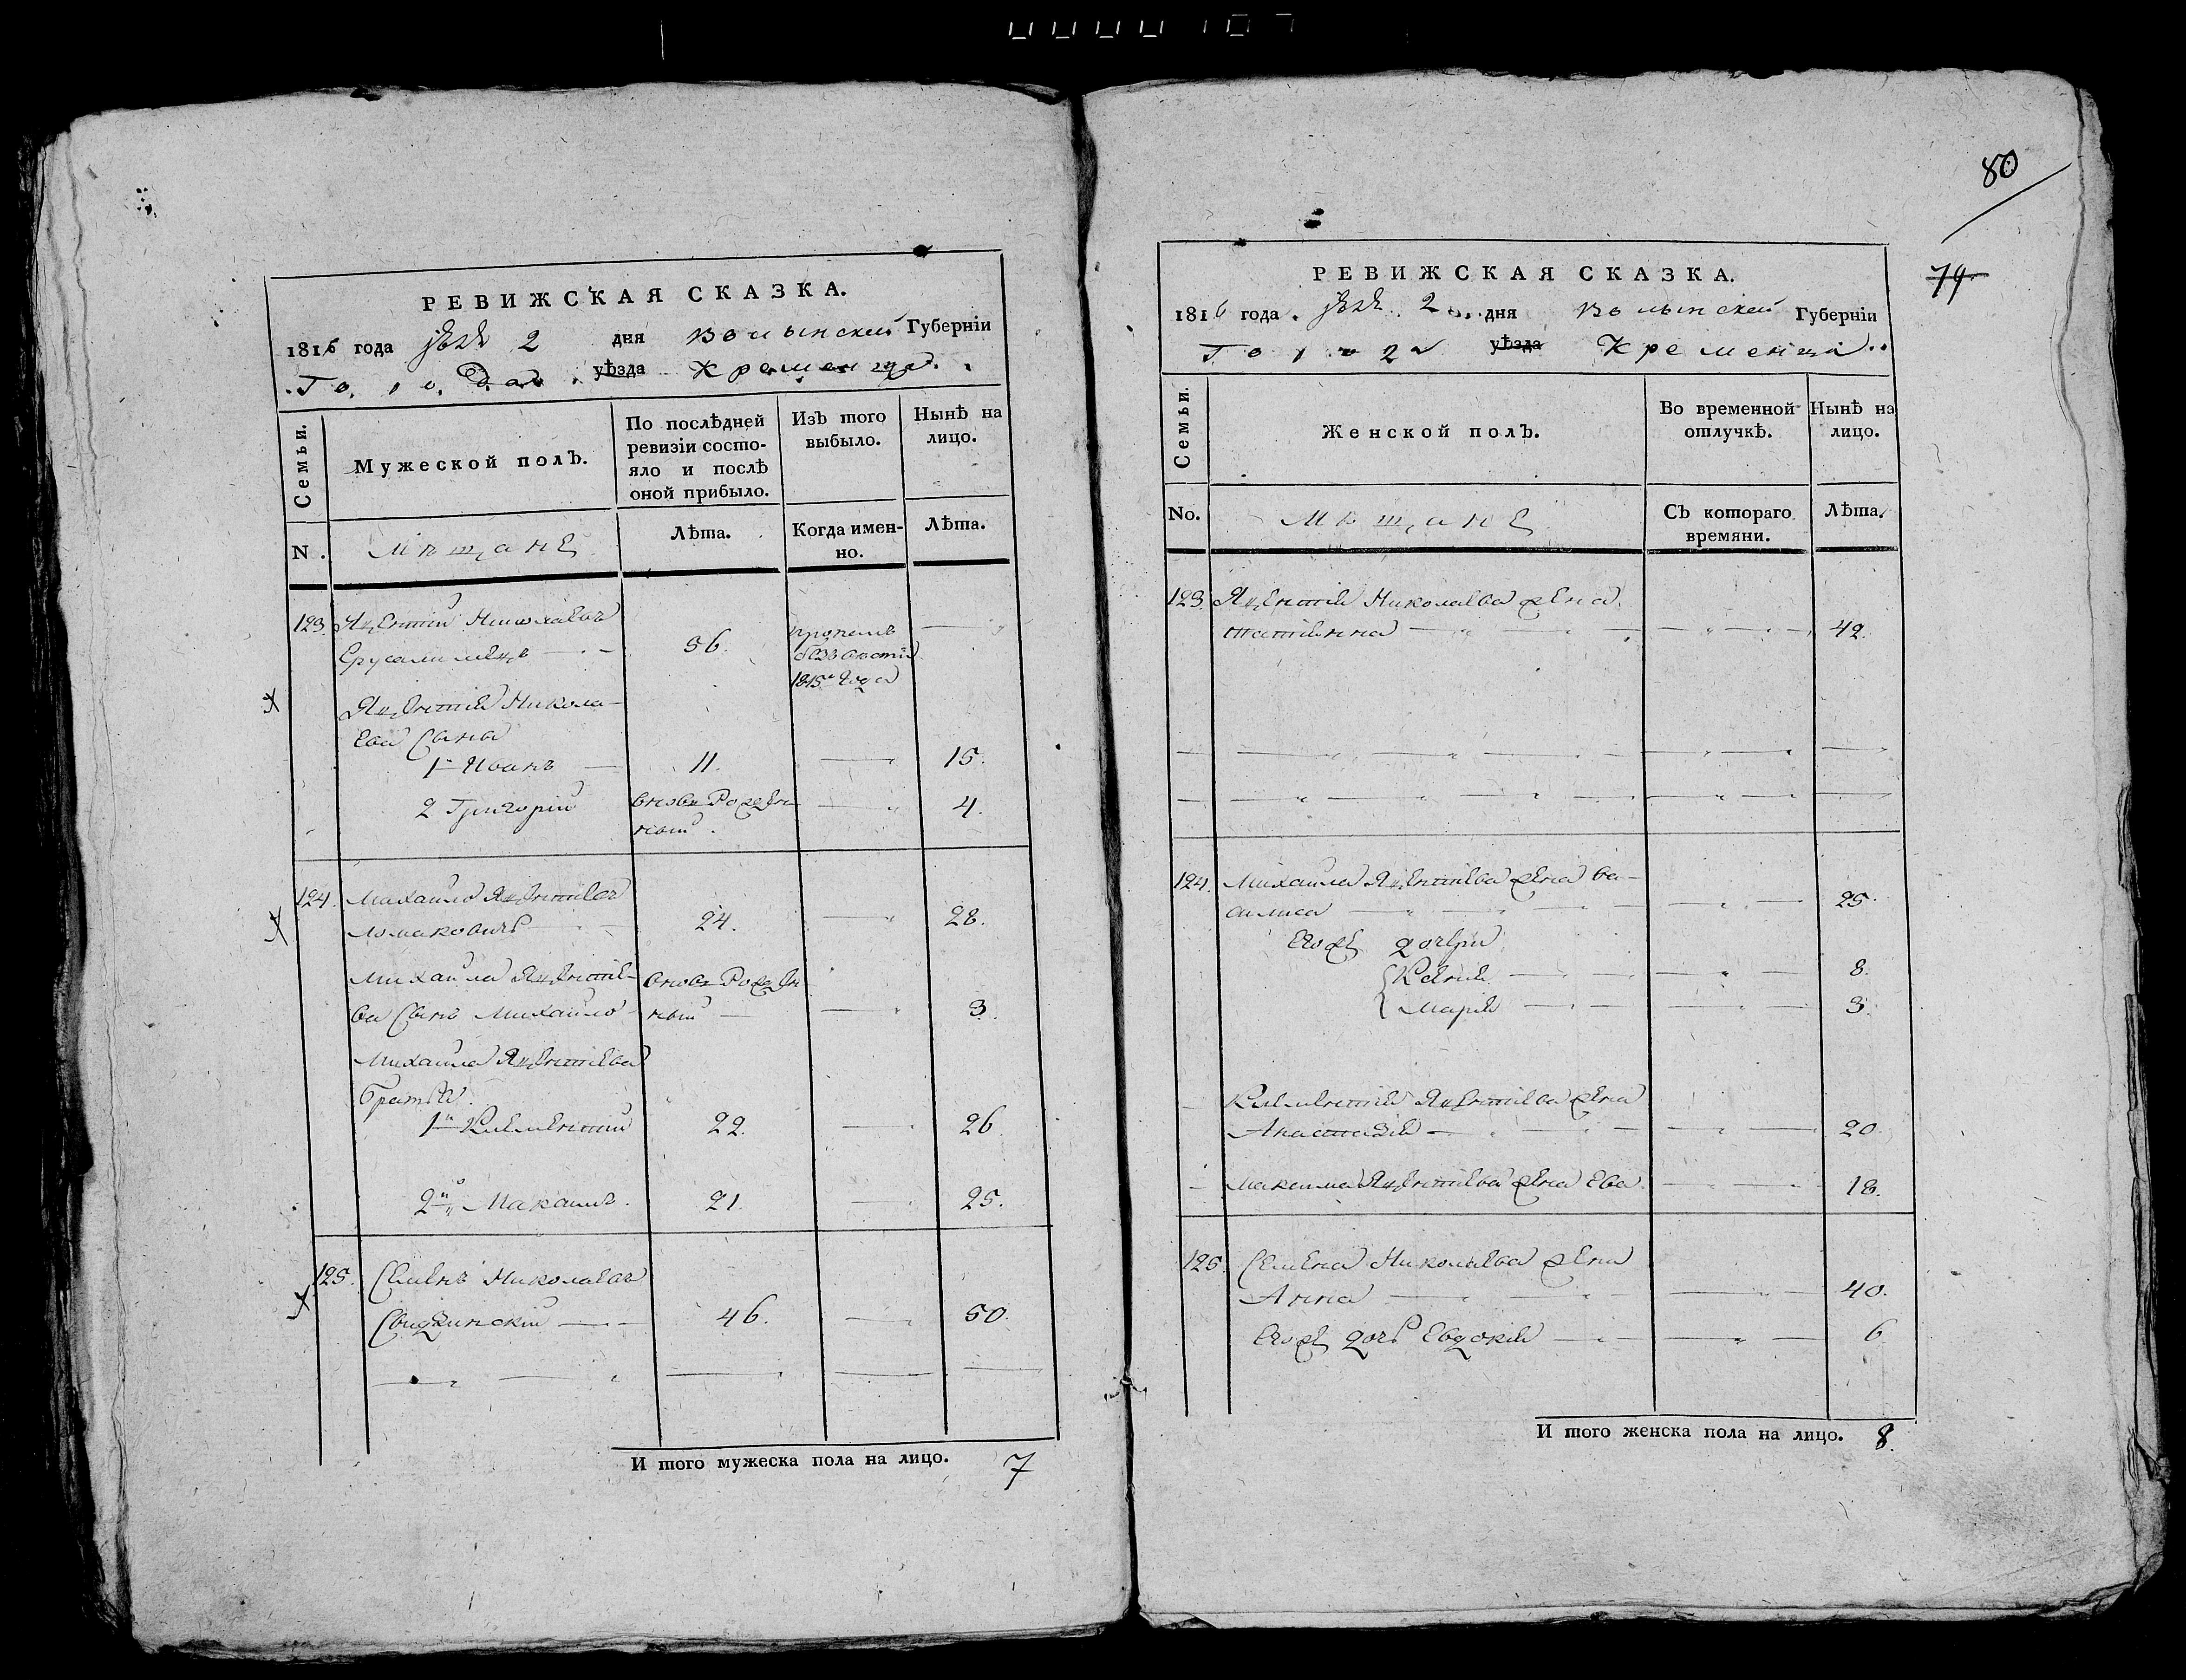 80
74
РЕВИЖСКАЯ СКАЗКА.
1816 года 2 дня Волынской Губерніи
Города уѣзда Кременца
Семьи.
Мужеской полъ.
По послѣдней ревизіи состояло и послѣ оной прибыло.
Изъ того выбыло.
Нынѣ на лицо.
N.
Мѣщане
Лѣта.
Когда именно.
Лѣта.
123. Яцентий Николаевъ
Ерусалимецъ 36. пропалъ безъ вѣсти 1815го года
Яцентия Николаева Сына
1й Иванъ 11. 15.
2 Григорій вновь Рожденный 4.
124. Михайло Яцентиевъ
Ломаковичъ 24. 28.
Михайла Яцентиева Сынъ Михайло вновь Рожденный 3.
Михайла Яцентиева
братья
1й Климентий 22. 26
2й Максимъ. 21. 25.
125. Семенъ Николаевъ
Свидзинский 46. 50.
И того мужеска пола на лицо. 7
РЕВИЖСКАЯ СКАЗКА.
1816 года 2 дня Волынской Губерніи
Города уѣзда Кременца
Семьи.
Женской полъ.
Во временной отлучкѣ.
Нынѣ на лицо.
No.
Мѣщане
Съ котораго времяни.
Лѣта.
123. Яцентия Николаева жена
Татіянна 42.
124. Михайла Яцентиева жена Васимса 25.
Егоже дочери
Ксения 8.
Мария 3.
Климентия Яцентиева жена
Анастазия 20.
Максима Яцентиева жена Ева 18.
125. Семена Николаева жена
Анна 40.
Егоже дочь Евдокия 6
И того женска пола на лицо. 8.